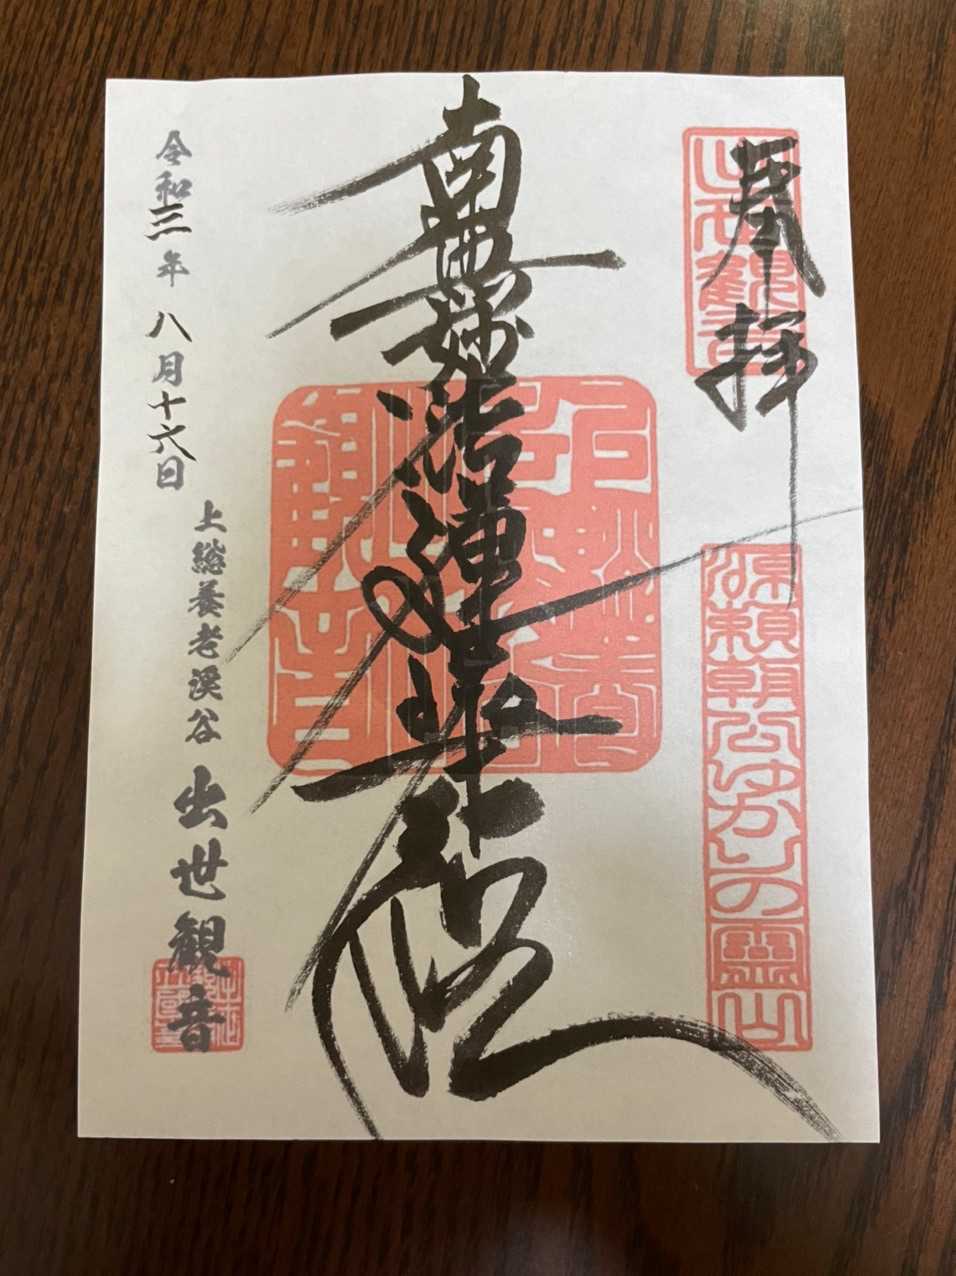 奉拝
源頼朝公ゆかりの霊山
南無妙法蓮華経
令和三年八月十六日
上総養老渓谷
出世観音